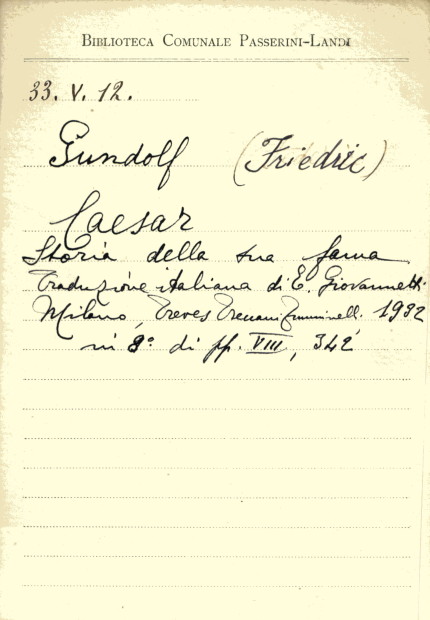 BIBLIOTECA COMUNALE PASSERINI-LANDI
33. V. 12.
Gundolf (Friedric)
Caesar
Storia della sua fama
Traduzione italiana di E. Giovannetti
Milano, Treves Treccani Tumminelli. 1932
in 8º di pp. VIII, 342